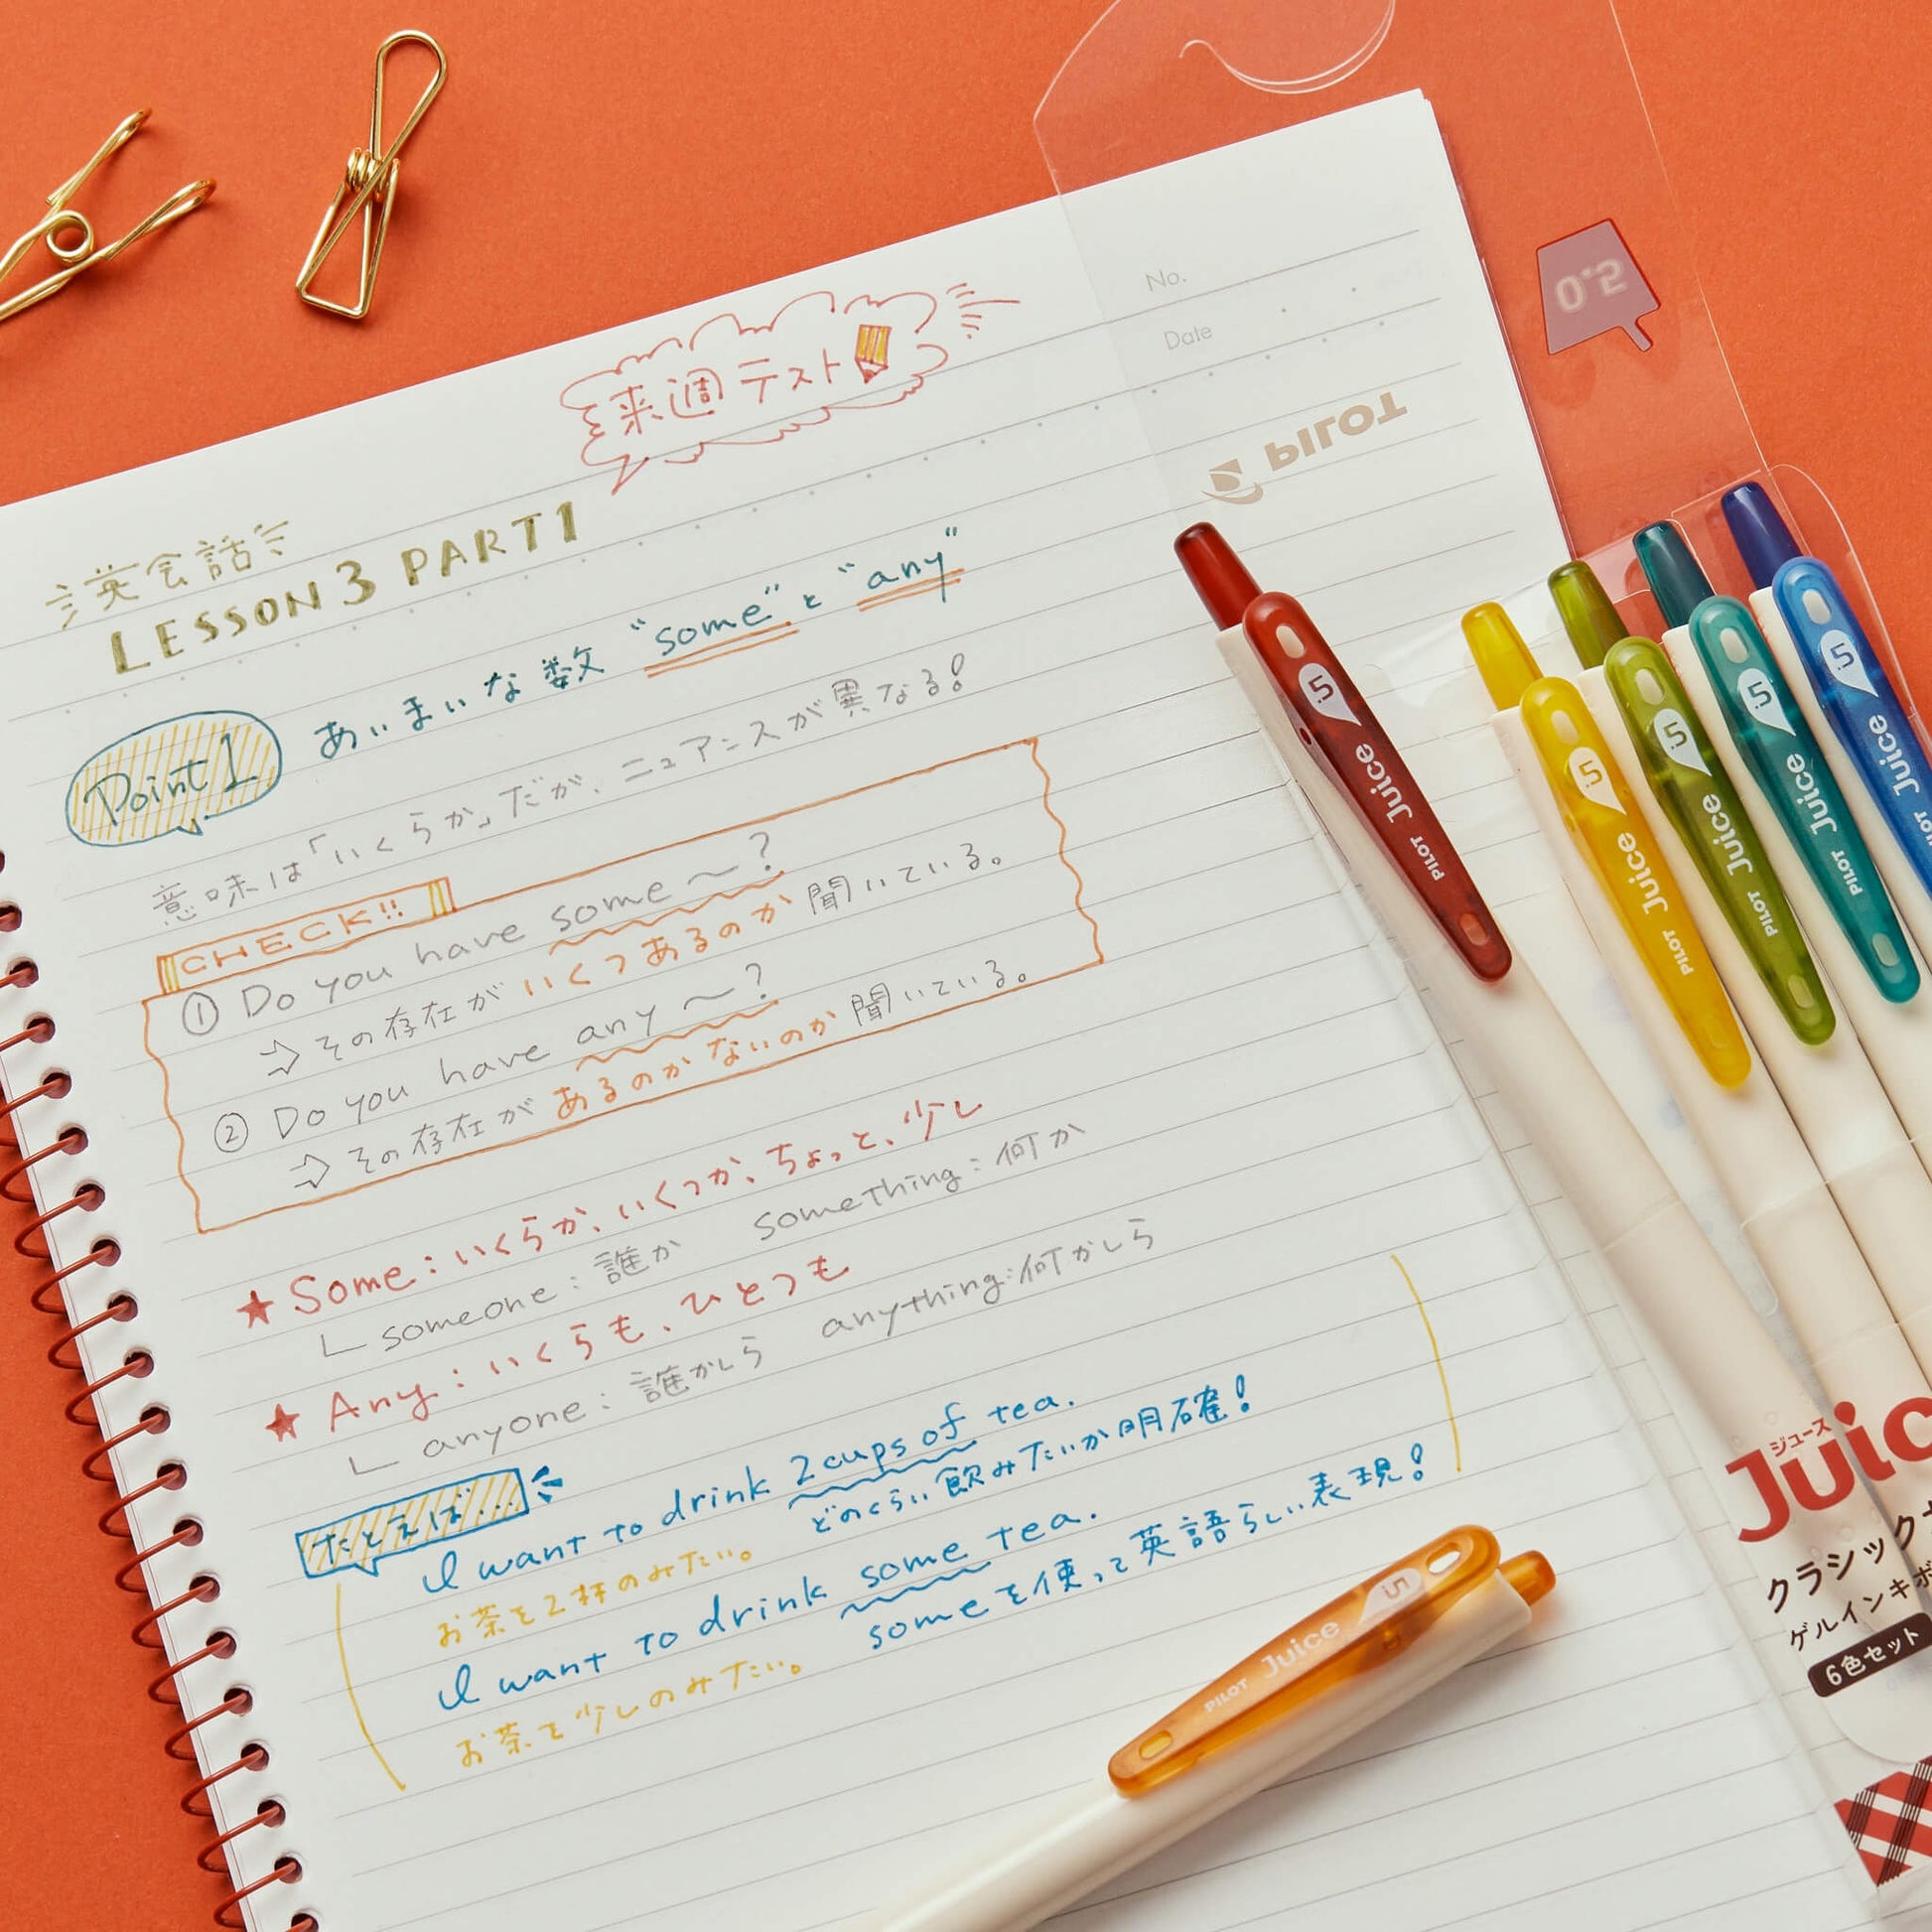 No.
Date
0.5
PILOT
来週テスト
英会話
LESSON 3 PART1
Point 1
あいまいな数 “some” と “any”
意味は「いくらか」だが、ニュアンスが異なる!
CHECK!!
① Do you have some 〜?
⇨ その存在がいくつあるのか聞いている。
② Do you have any 〜?
⇨ その存在があるのかないのか聞いている。
★ Some : いくらか、いくつか、ちょっと、少し
someone : 誰か something : 何か
★ Any : いくらも、ひとつも
anyone : 誰かしら anything : 何かしら
たとえば...
I want to drink 2 cups of tea.
お茶を2杯のみたい。 どのくらい飲みたいか明確!
I want to drink some tea.
お茶を少しのみたい。 someを使って英語らしい表現!
5 Juice PILOT
5 Juice PILOT
5 Juice PILOT
5 Juice PILOT
5 Juice PILOT
PILOT Juice 5
ジュース
Juic
クラシック
ゲルインキボ
6色セット